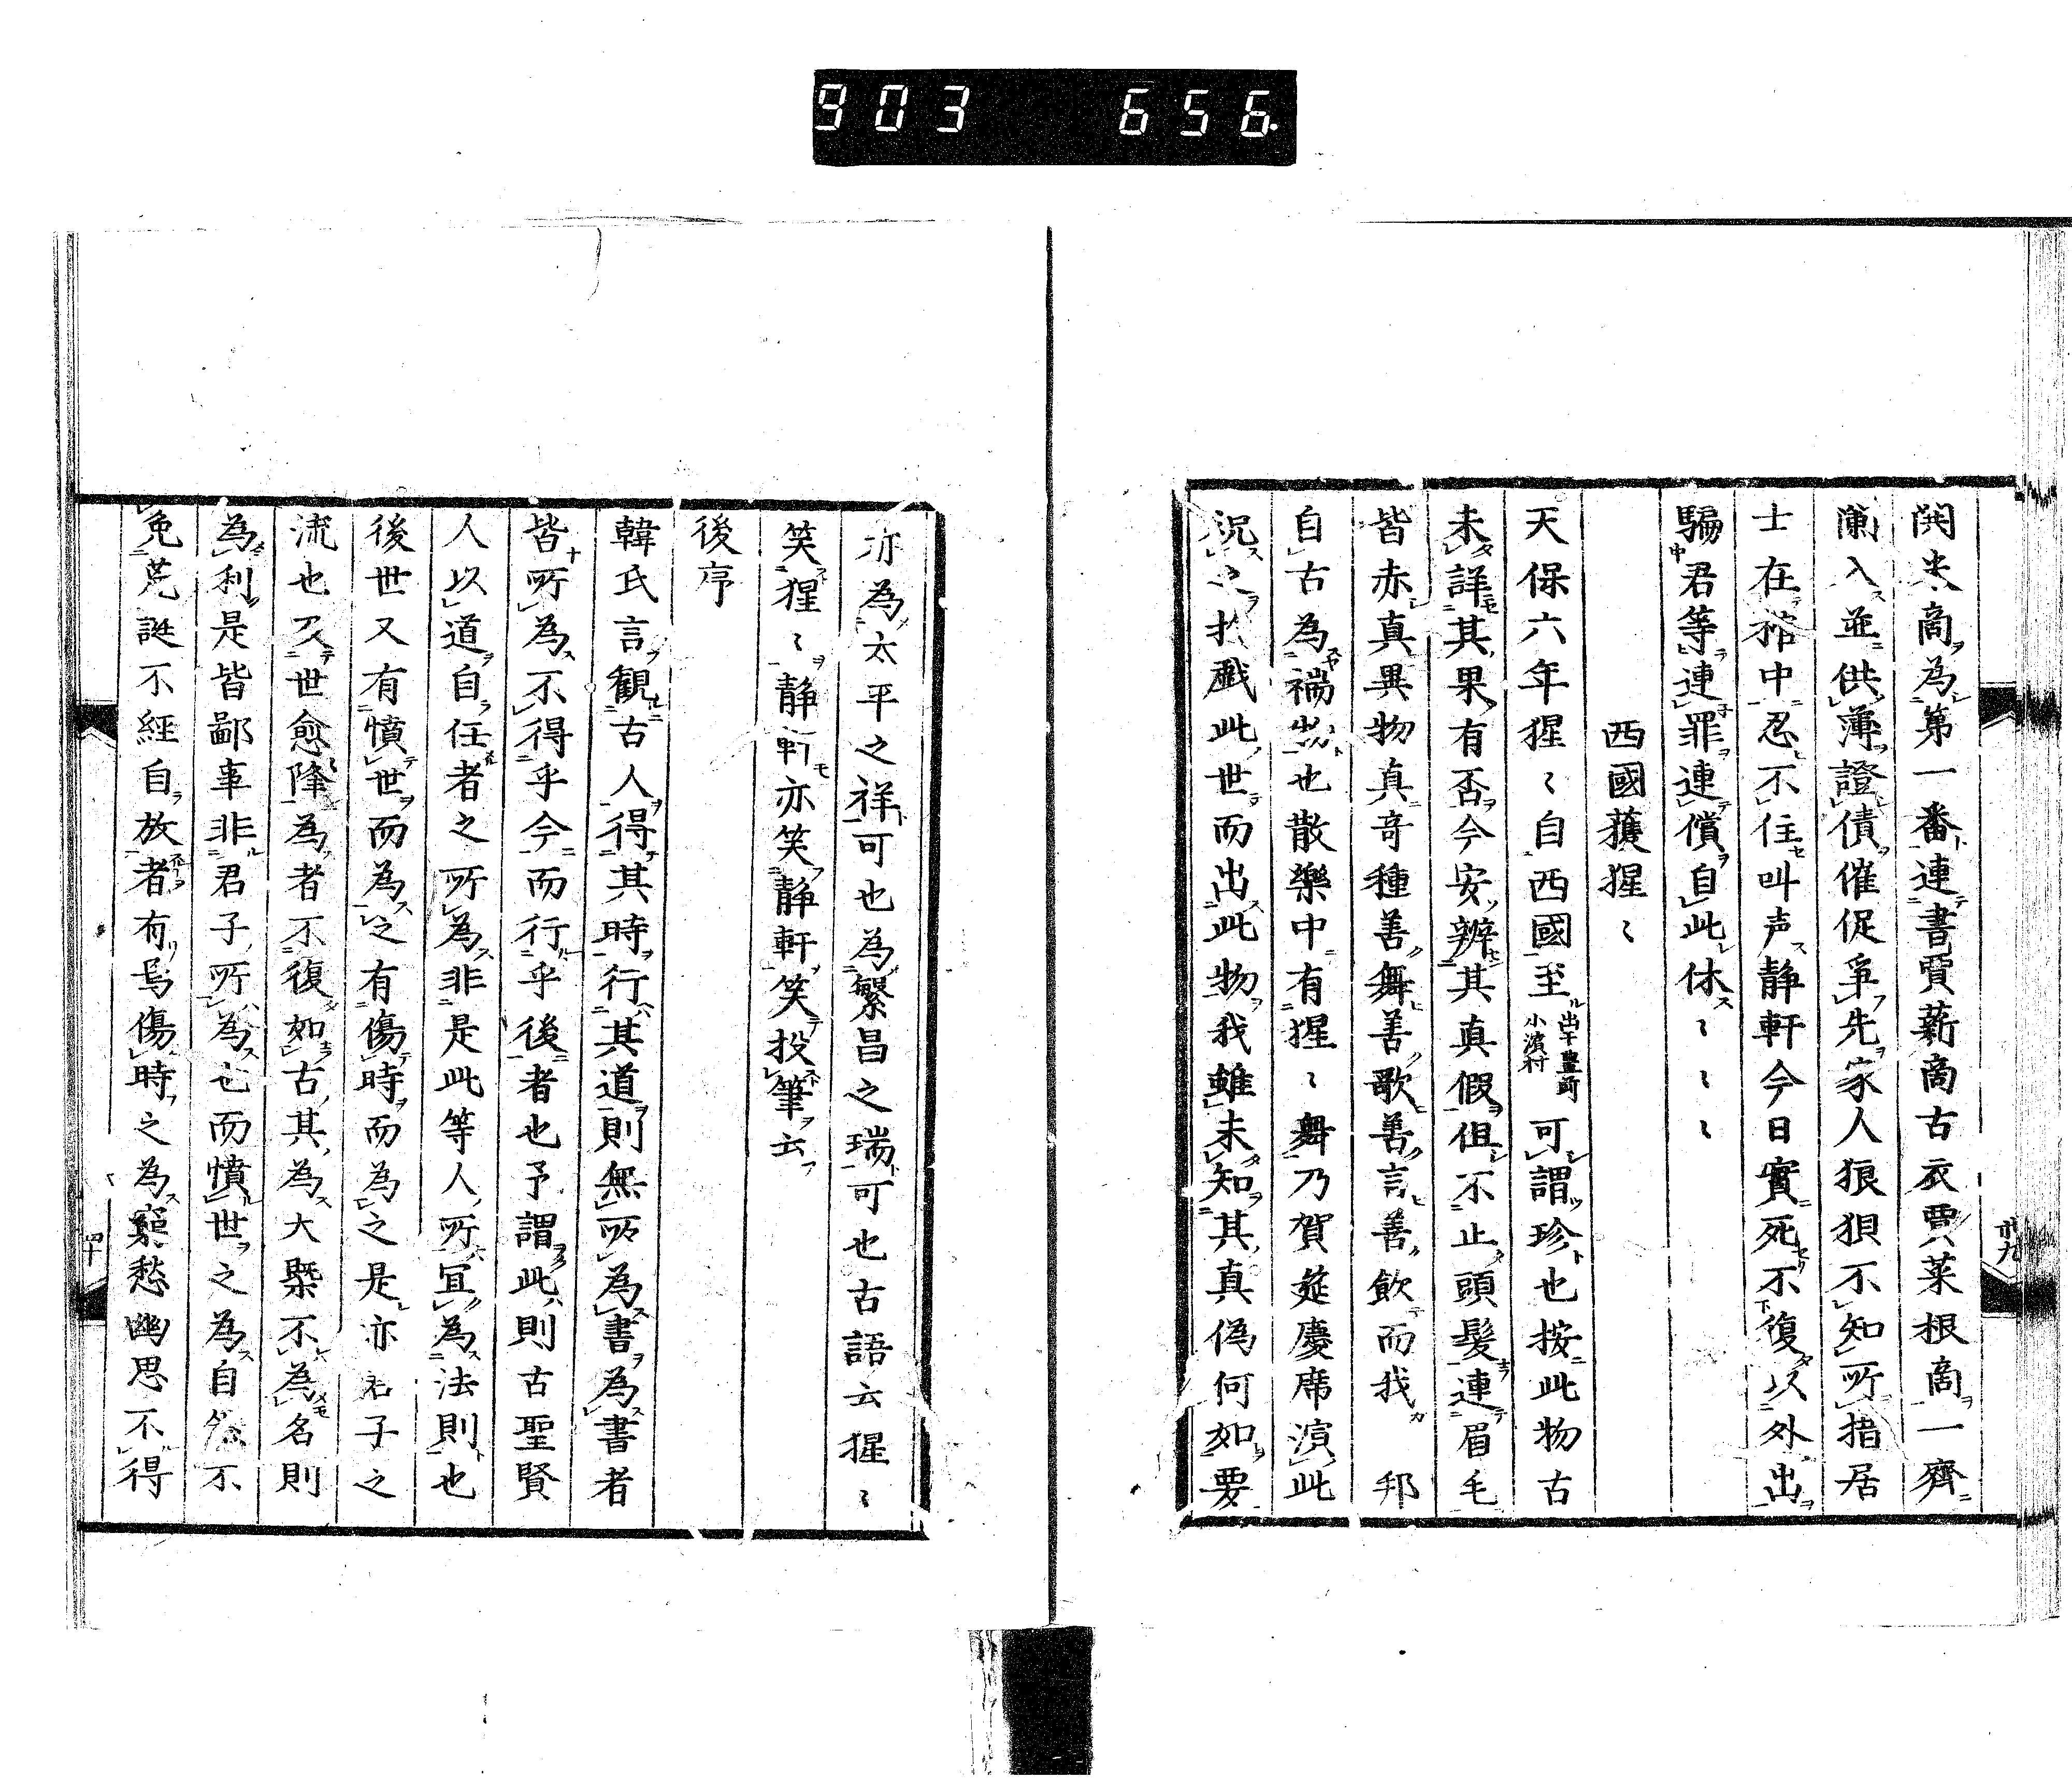 903 656.
関夫商為第一番連書賈薪商古衣賈菜根商一齊
闌入並供薄證債催促爭先家人狼狽不知所措居
士在棺中忍不住叫声静軒今日實死不復以外出
騙君等連罪連償自此休〻〻〻
西國獲猩〻
天保六年猩〻自西國至出于豊前小濱村可謂珍也按此物古
未詳其果有否今安辨其真假但不止頭髮連眉毛
皆赤真異物真奇種善舞善歌善言善飲而我邦
自古為瑞物也散樂中有猩〻舞乃賀莚慶席演此
況之於戲此世而出此物我雖未知其真偽何如要
卅九
亦為太平之祥可也為繁昌之瑞可也古語云猩〻
笑猩〻静軒亦笑静軒笑投筆云
後序
韓氏言觀古人得其時行其道則無所為書為書者
皆所為不得乎今而行乎後者也予謂此則古聖賢
人以道自任者之所為非是此等人所冝為法則也
後世又有憤世而為之有傷時而為之是亦君子之
流也又世愈降為者不復如古其為大槩不為名則
為利是皆鄙事非君子所為也而憤世之為自然不
免荒誕不經自放者有焉傷時之為窮愁幽思不得
四十